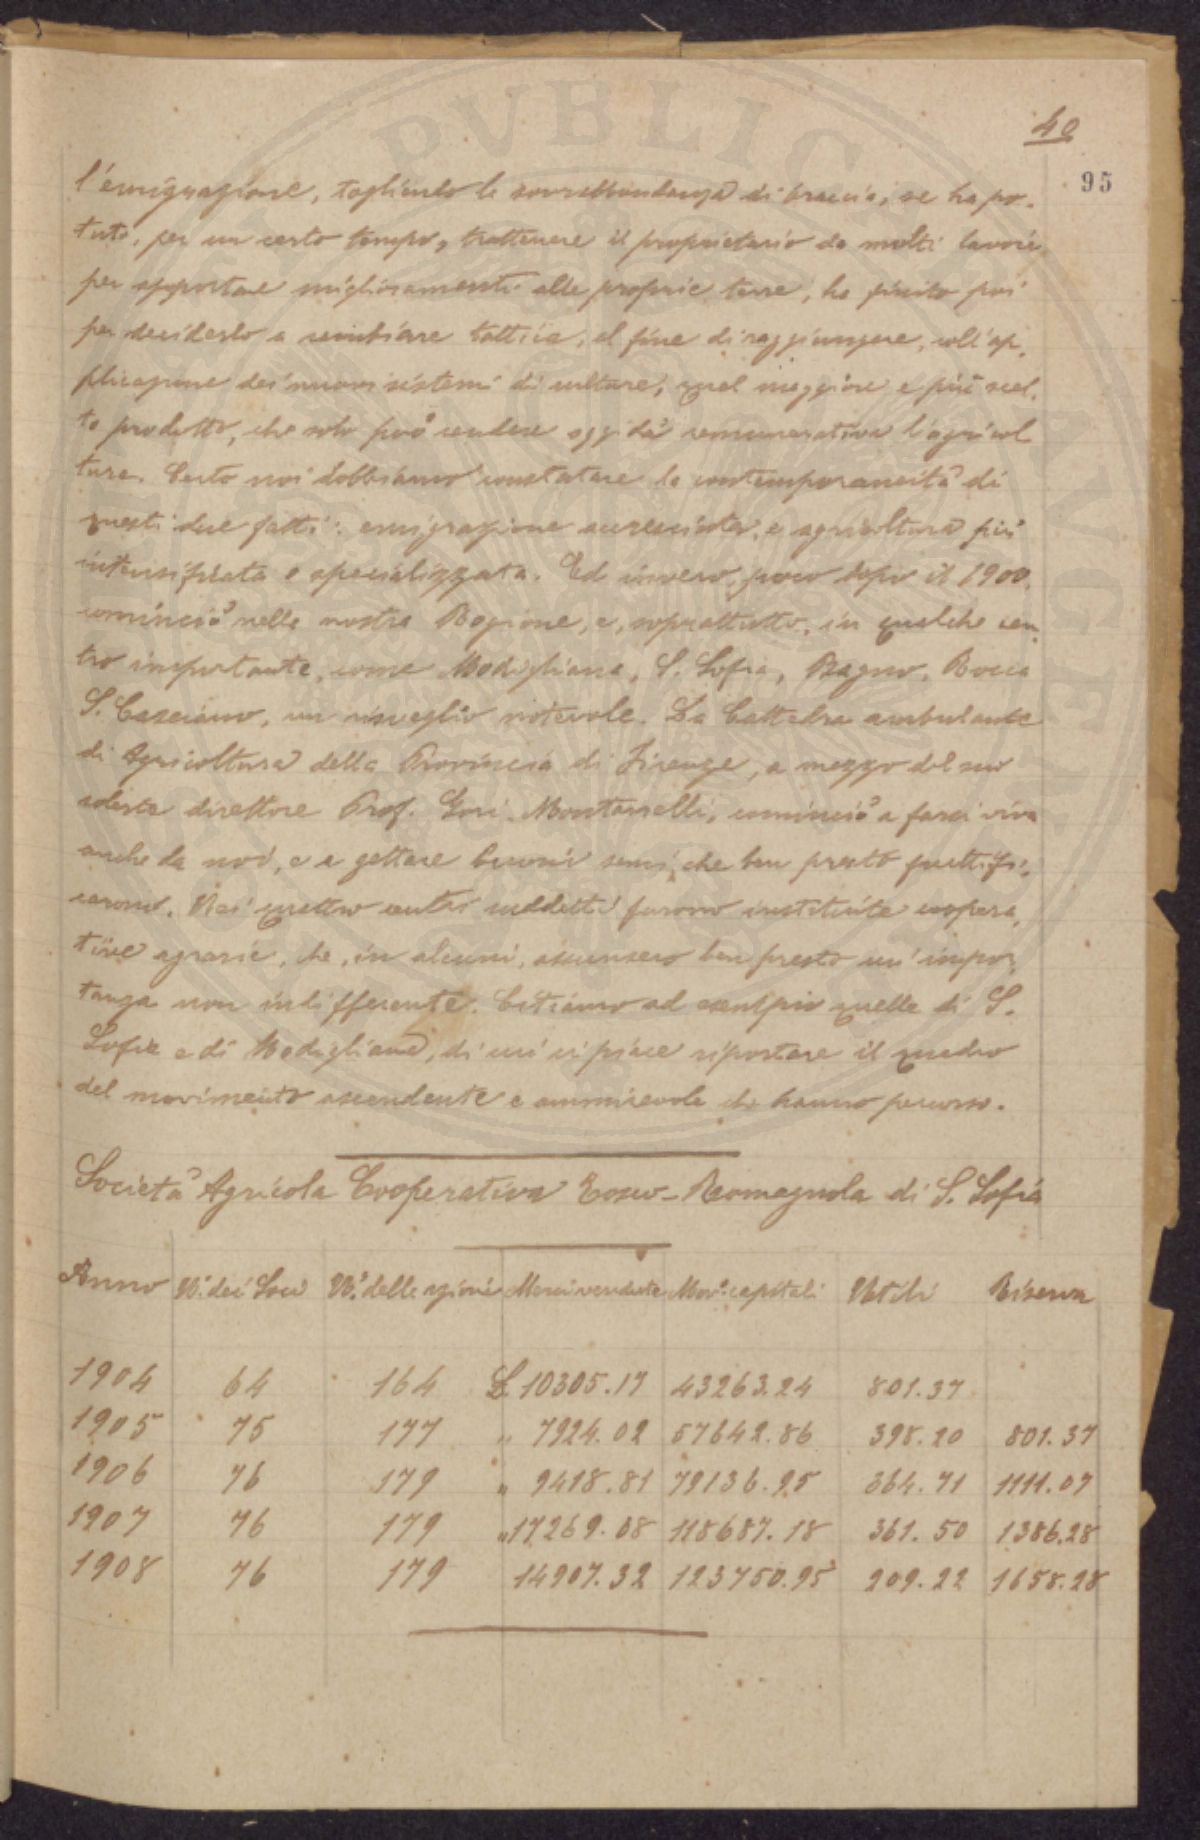 40
95
l'emigrazione, togliendo la sovrabbondanza di braccia, se ha po-
tuto, per un certo tempo, trattenere il proprietario da molti lavori
per apportare miglioramenti alle proprie terre, ha finito poi
per deciderlo a cambiare tattica, al fine di raggiungere, coll'ap-
plicazione dei nuovi sistemi di culture, quel maggiore e più scel-
to prodotto, che solo può rendere oggidì remunerativa l'agricol
tura. Certo noi dobbiamo constatare la contemporaneità di
questi due fatti: emigrazione accresciuta, e agricoltura più
intensificata e specializzata. Ed invero, poco dopo il 1900,
cominciò nella nostra Regione, e, soprattutto, in qualche cen-
tro importante, come Modigliana, S. Sofia, Bagno, Rocca
S. Casciano, un risveglio notevole. La Cattedra ambulante
di Agricoltura della Provincia di Firenze, a mezzo del suo
solerte direttore Prof. Gori-Montanelli, cominciò a farsi viva
anche da noi, e a gettare buoni semi, che ben presto fruttifi-
carono. Nei quattro centri suddetti furono instituite coopera-
tive agrarie, che, in alcuni, assunsero ben presto un'impor-
tanza non indifferente. Citiamo ad esempio quelle di S.
Sofia e di Modigliana, di cui ci piace riportare il quadro
del movimento ascendente e ammirevole che hanno percorso.
Società Agricola Cooperativa Tosco-Romagnola di S. Sofia
Anno N. dei Soci N.° delle azioni Merci vendute Mov.° capitali Utili Riserva
1904 64 164 L. 10305.17 43263.24 801.37
1905 75 177 " 7924.02 57642.86 398.20 801.37
1906 76 179 " 9418.81 79136.95 364.71 1111.07
1907 76 179 " 17269.08 118687.18 361.50 1386.28
1908 76 179 14907.32 123750.95 209.22 1658.28